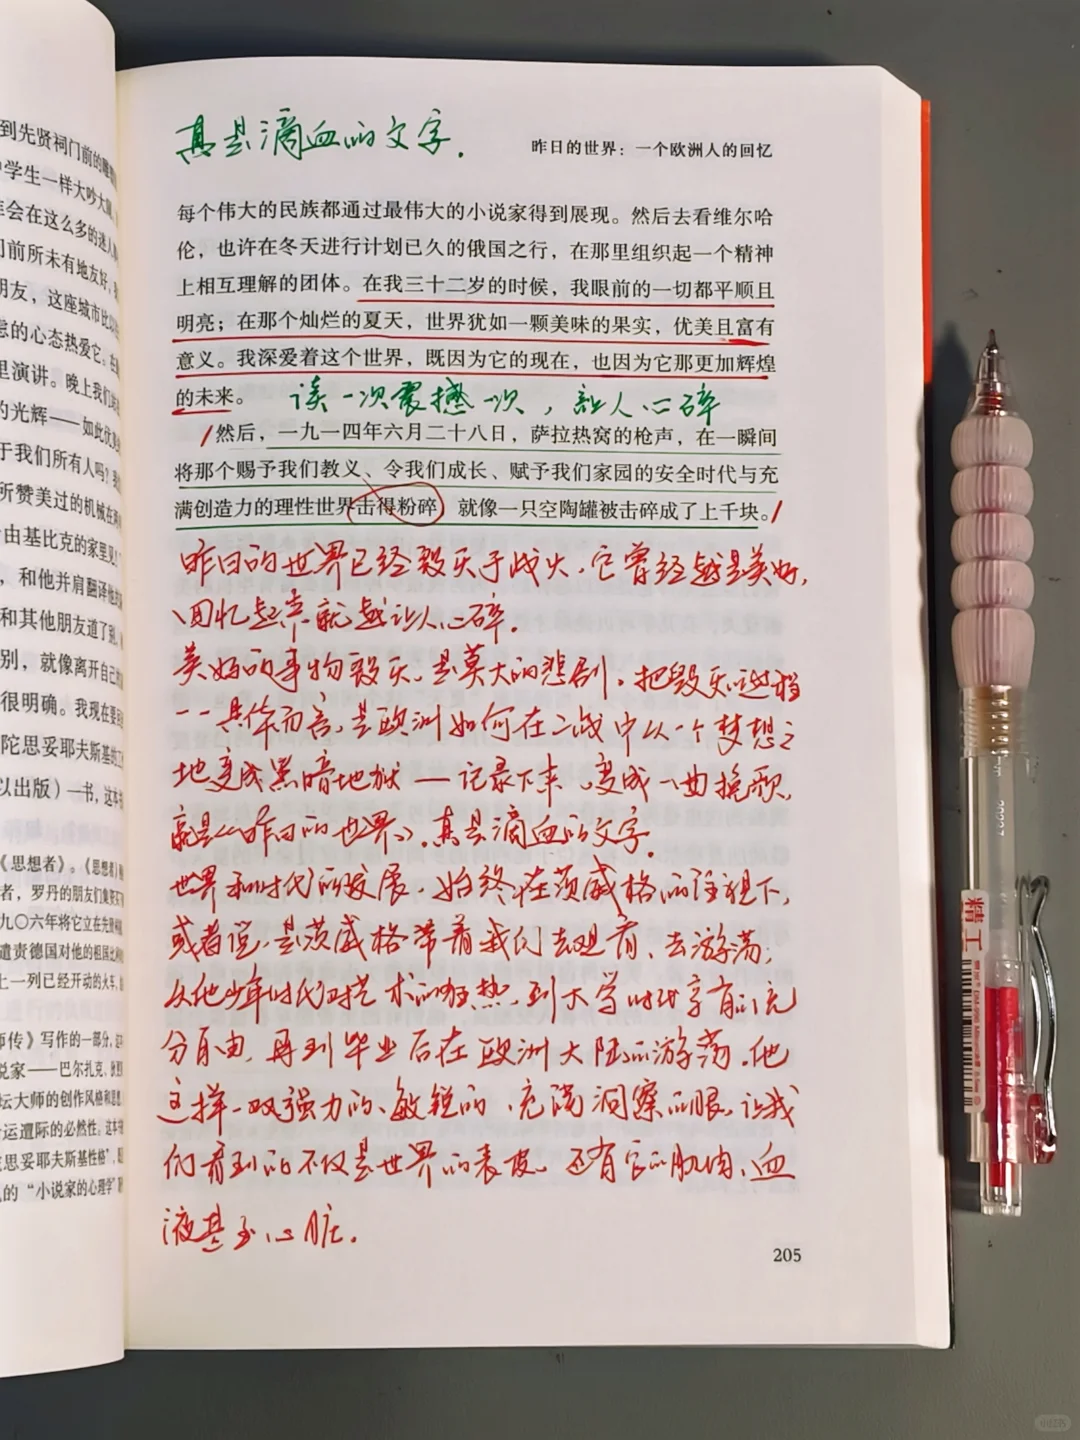 到先贤祠门前的雕塑
中学生一样大吵大
会在这么多的迷人
门前所未有地友好,
朋友,这座城市比
的心态热爱它。在
里演讲。晚上我们
的光辉——如此优
于我们所有人吗?
所赞美过的机械在
由基比克的家里见
,和他并肩翻译他
和其他朋友道了别,
别,就像离开自己
很明确。我现在要
陀思妥耶夫斯基的
以出版)一书,这本
《思想者》。《思想者》
者,罗丹的朋友们集资买
九〇六年将它立在先贤祠
遣责德国对他的祖国比利
上一列已经开动的火车,
师传》写作的一部分,这
说家——巴尔扎克、狄更
坛大师的创作风格和思
运遭际的必然性。这本
思妥耶夫斯基性格”,
的“小说家的心理学”
真是滴血的文字.
昨日的世界:一个欧洲人的回忆
每个伟大的民族都通过最伟大的小说家得到展现。然后去看维尔哈
伦,也许在冬天进行计划已久的俄国之行,在那里组织起一个精神
上相互理解的团体。在我三十二岁的时候,我眼前的一切都平顺且
明亮;在那个灿烂的夏天,世界犹如一颗美味的果实,优美且富有
意义。我深爱着这个世界,既因为它的现在,也因为它那更加辉煌
的未来。
读一次震撼一次,让人心碎
然后,一九一四年六月二十八日,萨拉热窝的枪声,在一瞬间
将那个赐予我们教义、令我们成长、赋予我们家园的安全时代与充
满创造力的理性世界击得粉碎,就像一只空陶罐被击碎成了上千块。
昨日的世界已经毁灭于战火,它曾经越是美好,
回忆起来就越让人心碎.
美好的事物毁灭,是莫大的悲剧。把毁灭的过程
——具体而言,是欧洲如何在二战中从一个梦想之
地变成黑暗地狱——记录下来,变成一曲挽歌,
就是《昨日的世界》。真是滴血的文字.
世界和时代的发展,始终在茨威格的注视下,
或者说,是茨威格带着我们去观看、去游荡;
从他少年时代对艺术的狂热,到大学时代享有的充
分自由,再到毕业后在欧洲大陆的游荡。他
这样一双强力的、敏锐的、充满洞察的眼,让我
们看到的不仅是世界的表皮,还有它的肌肉、血
液甚至心脏.
205
精工
小红书